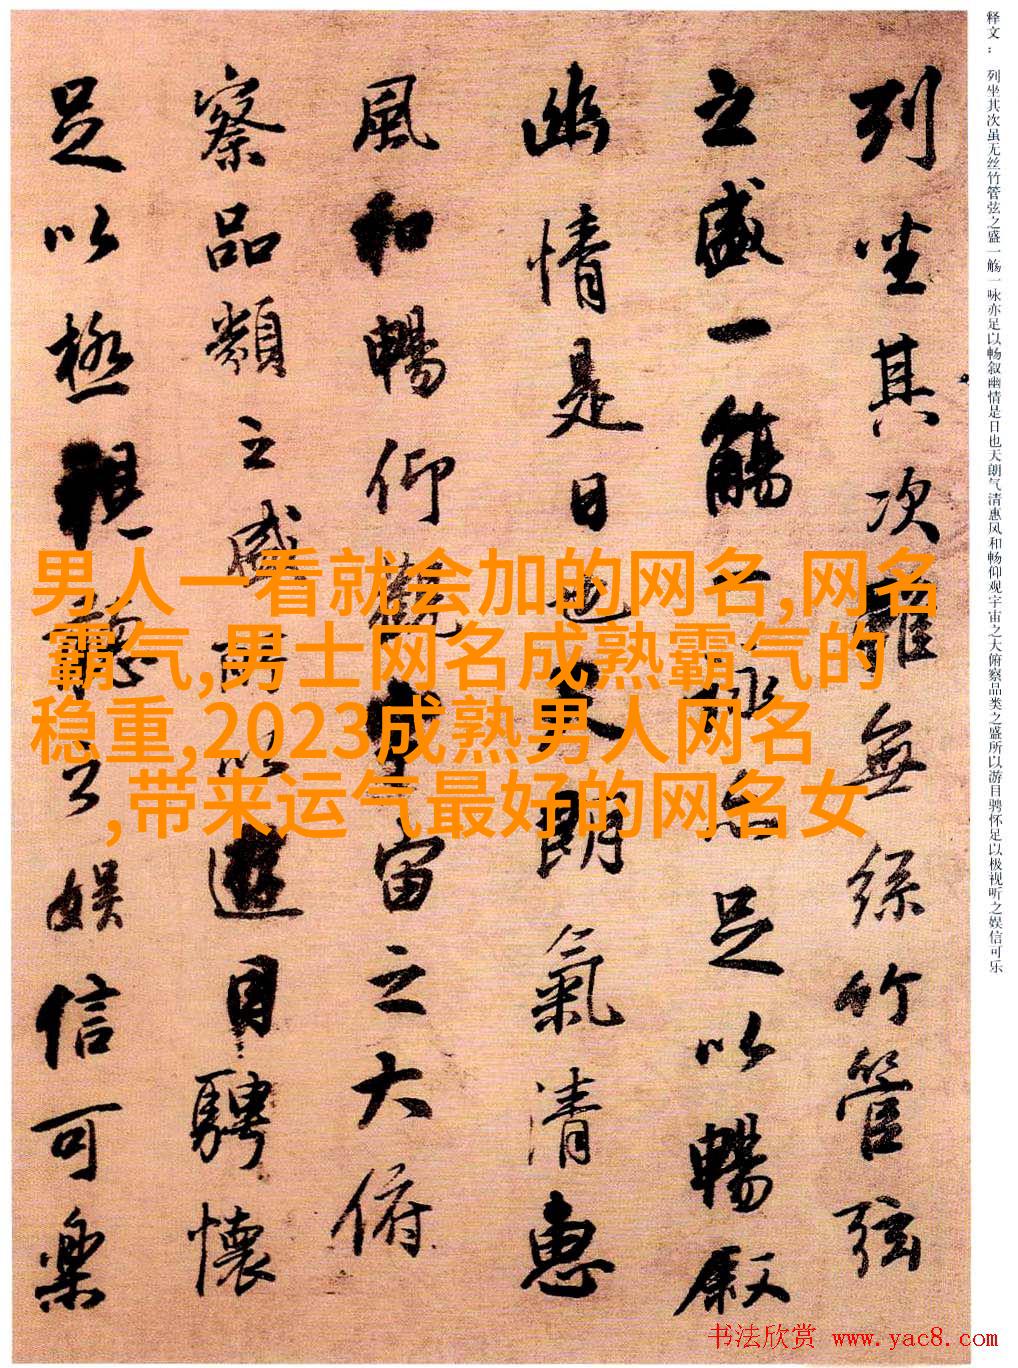 释文：列坐其次虽无丝竹管弦之盛一觞一咏亦足以畅叙幽情是日也天朗气清惠风和畅仰观宇宙之大俯察品类之盛所以游目骋怀足以极视听之娱信可乐
列坐其次雖無絲竹管弦
之盛一觴一詠亦足以暢叙
幽情是日也天朗氣清惠
風和暢仰觀宇宙之大俯
察品類之盛所以遊目騁懷
足以極視聽之娱信可樂
男人一看就会加的网名,网名
霸气,男士网名成熟霸气的
稳重,2023成熟男人网名
,带来运气最好的网名女
书法欣赏 www.yac8.com